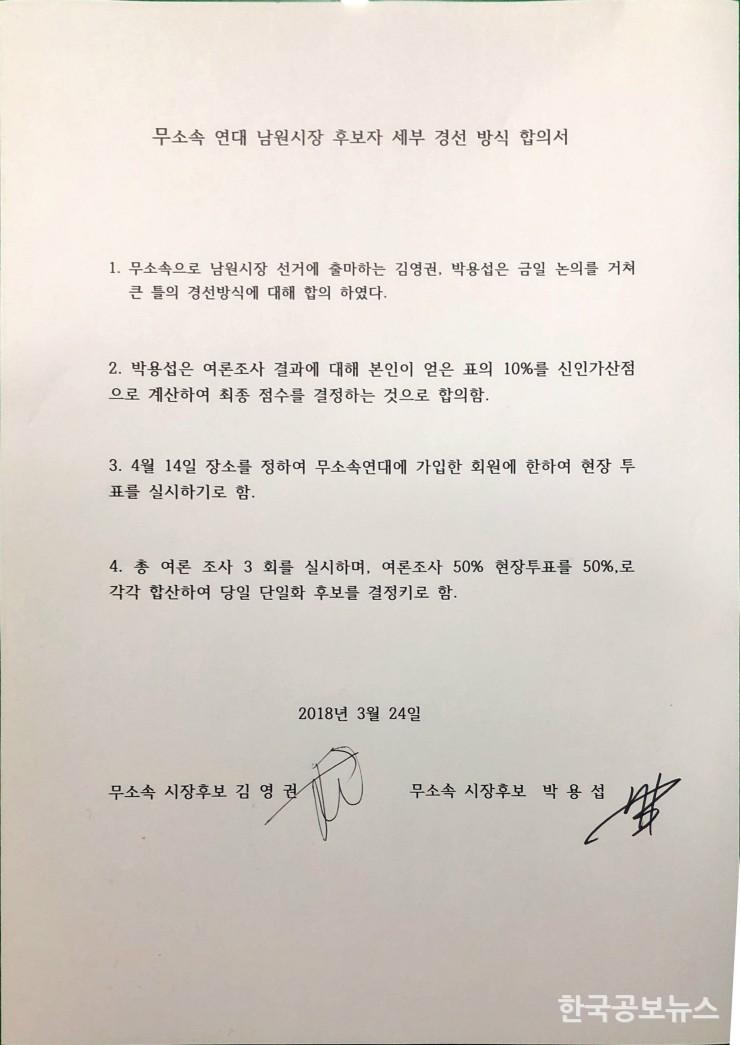 무소속 연대 남원시장 후보자 세부 경선 방식 합의서
1. 무소속으로 남원시장 선거에 출마하는 김영권, 박용섭은 금일 논의를 거쳐
큰 틀의 경선방식에 대해 합의 하였다.
2. 박용섭은 여론조사 결과에 대해 본인이 얻은 표의 10%를 신인가산점
으로 계산하여 최종 점수를 결정하는 것으로 합의함.
3. 4월 14일 장소를 정하여 무소속연대에 가입한 회원에 한하여 현장 투
표를 실시하기로 함.
4. 총 여론 조사 3 회를 실시하며, 여론조사 50% 현장투표를 50%,로
각각 합산하여 당일 단일화 후보를 결정키로 함.
2018년 3월 24일
무소속 시장후보 김 영 권 무소속 시장후보 박 용 섭
한국공보뉴스